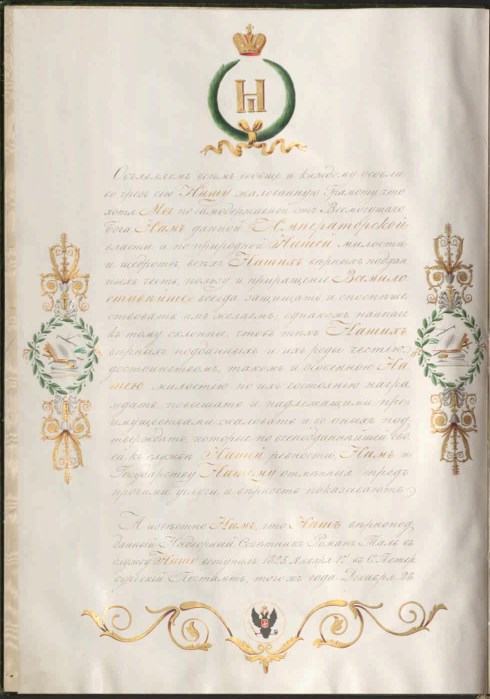 Н I
Объявляемъ всемъ вообще и каждому особли
во чрезъ сію Нашу жалованную Грамоту, что
хотя Мы по самодержавной отъ Всемогущаго
Бога Намъ данной Императорской
власти, а по природной Нашей милости
и щедротѣ всѣхъ Нашихъ вѣрныхъ поддан
ныхъ честь, пользу и приращеніе Всемило
стивѣйше всегда защищать и споспѣше
ствовать имъ желаемъ, однакожъ наипаче
къ тому склонны, чтобъ тѣхъ Нашихъ
вѣрныхъ подданныхъ и ихъ роды честью,
достоинствомъ, також и особенною На
шею милостію по ихъ состоянію награ
ждать, повышать и надлежащими преи
муществами жаловать и въ оныхъ под
тверждать, которые по всеподданнѣйшей сво
ей къ службѣ Нашей ревности Намъ и
Государству Нашему отмѣнныя предъ
прочими услуги и вѣрность показываютъ.
А извѣстно Намъ, что Нашъ вѣрнопод
данный Надворный Совѣтникъ Романъ Таль въ
службу Нашу вступилъ 1823 Января 17 въ С. Петер
бургскій Почтамтъ, того жъ года Декабря 28